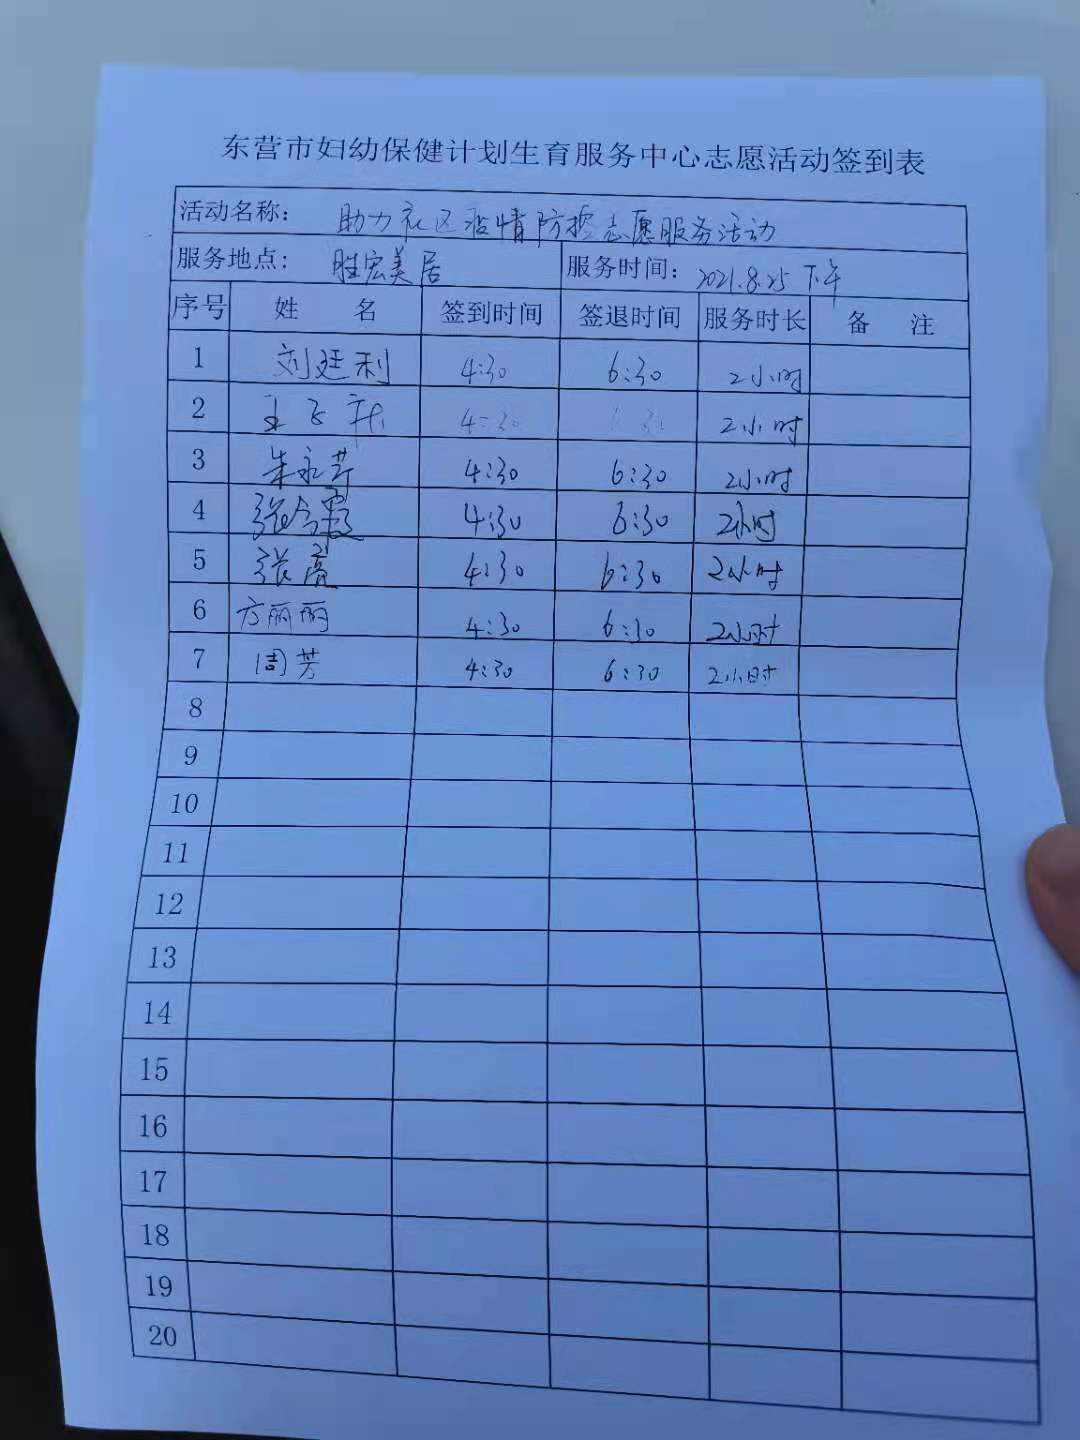 东营市妇幼保健计划生育服务中心志愿活动签到表
活动名称： 助力社区疫情防控志愿服务活动
服务地点： 胜宏美居 服务时间： 2021.8.25 下午
序号 姓 名 签到时间 签退时间 服务时长 备 注
1 刘廷利 4:30 6:30 2小时
2 王飞 4:30 6:30 2小时
3 朱永芹 4:30 6:30 2小时
4 张令霞 4:30 6:30 2小时
5 张亮 4:30 6:30 2小时
6 方丽丽 4:30 6:30 2小时
7 周芳 4:30 6:30 2小时
8
9
10
11
12
13
14
15
16
17
18
19
20